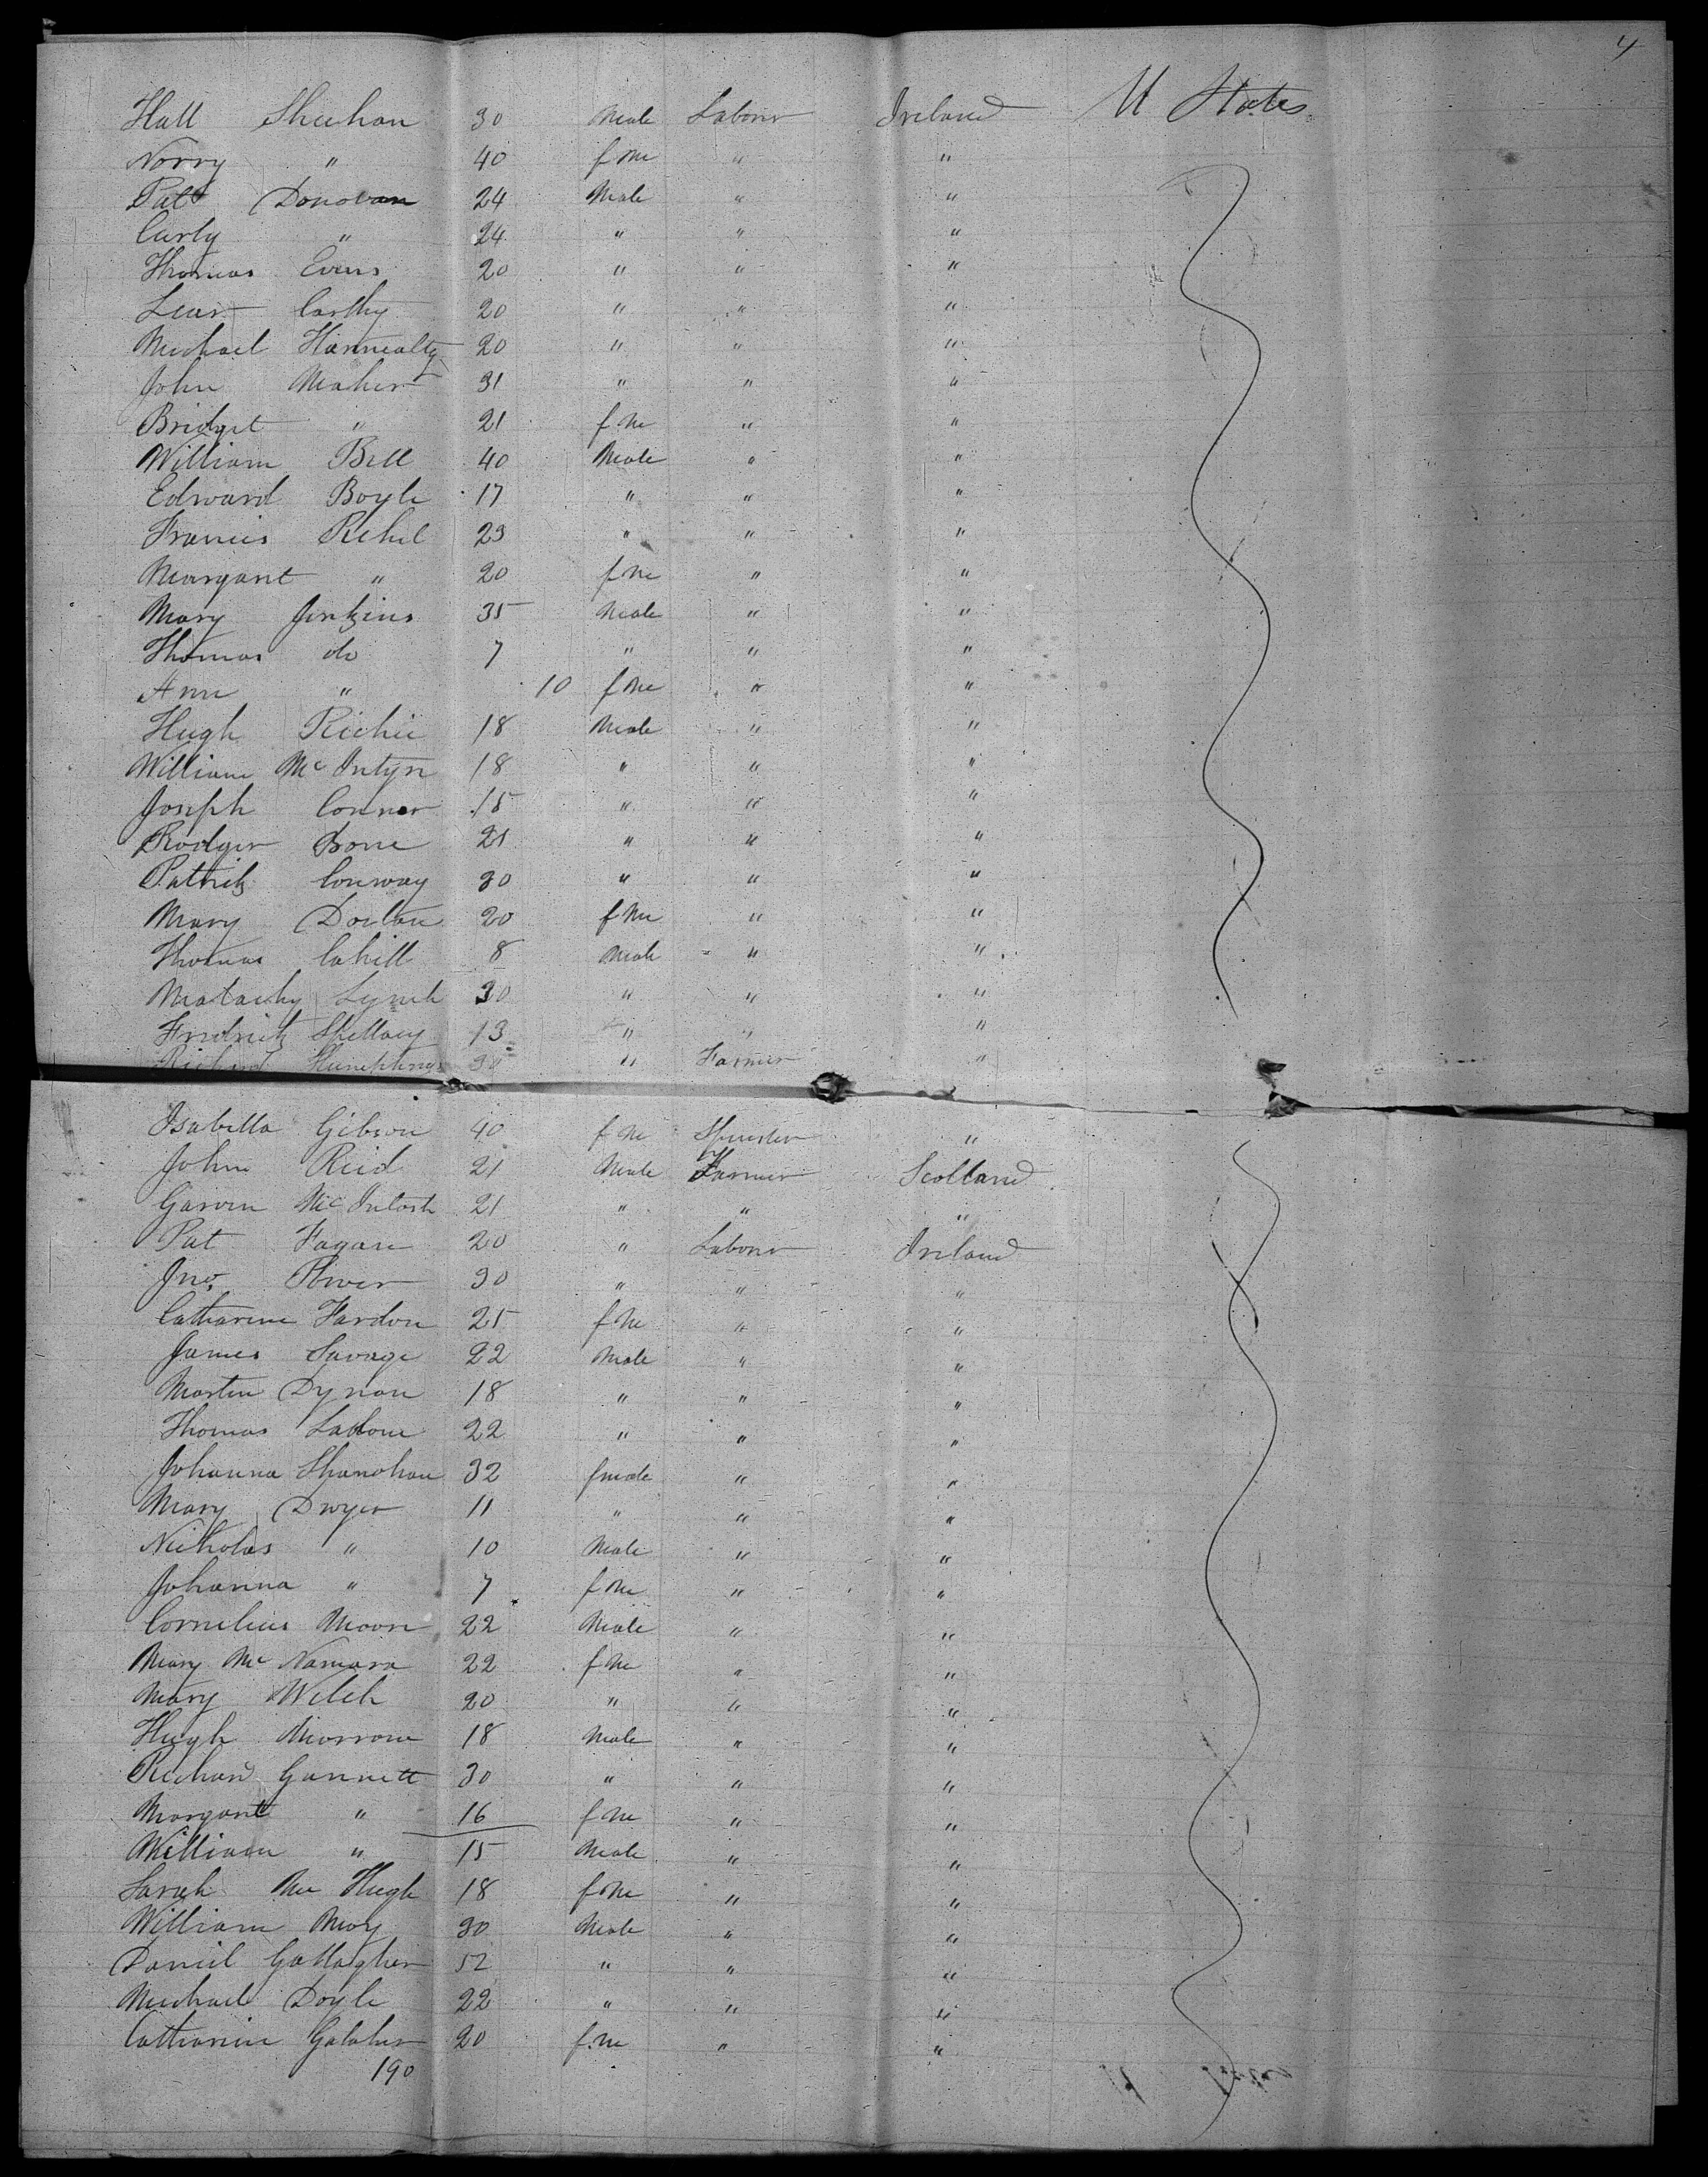 4
Hall Sheehan 30 Male Labour Ireland U States
Norry " 40 f me " "
Patt Donovan 24 Male " "
Curly " 24 " " "
Thomas Evens 20 " " "
Lear Carthy 20 " " "
Michael Hannealty 20 " " "
John Maher 31 " " "
Bridget " 21 f me " "
William Bell 40 Male " "
Edward Boyle 17 " " "
Francis Rehil 23 " " "
Margaret " 20 f me " "
Mary Jenkins 35 Male " "
Thomas do 7 " " "
Ann " 10 f me " "
Hugh Richie 18 Male " "
William Mc Intyre 18 " " "
Joseph Connor 15 " " "
Rodger Bone 21 " " "
Patrick Conway 30 " " "
Mary Dorlan 20 f me " "
Thomas Cahill 8 Male " "
Malachy Lynch 30 " " "
Fredrick Shellacy 13 " " "
Richard Humphreys 30 " Farmer "
Isabella Gibson 40 f me Spinster "
John Reid 21 Male Farmer Scotland
Garven McIntosh 21 " " "
Pat Fagan 20 " Labour Ireland
Jno. Power 30 " " "
Catharine Fardon 25 f me " "
James Savage 22 Male " "
Martin Dynan 18 " " "
Thomas 22 " " "
Johanna Shanahan 32 fmale " "
Mary Dwyer 11 " " "
Nicholas " 10 Male " "
Johanna " 7 f me " "
Cornelius Moore 22 Male " "
Mary Mc Namara 22 f me " "
Mary Welch 20 " " "
Hugh Morrow 18 Male " "
Richard Gannett 30 " " "
Margaret " 16 f me " "
William " 15 Male " "
Sarah Mc Hugh 18 f me " "
William Moy 30 Male " "
Daniel Gallagher 52 " " "
Michael Doyle 22 " " "
Catharine Galaher 20 f me " "
190